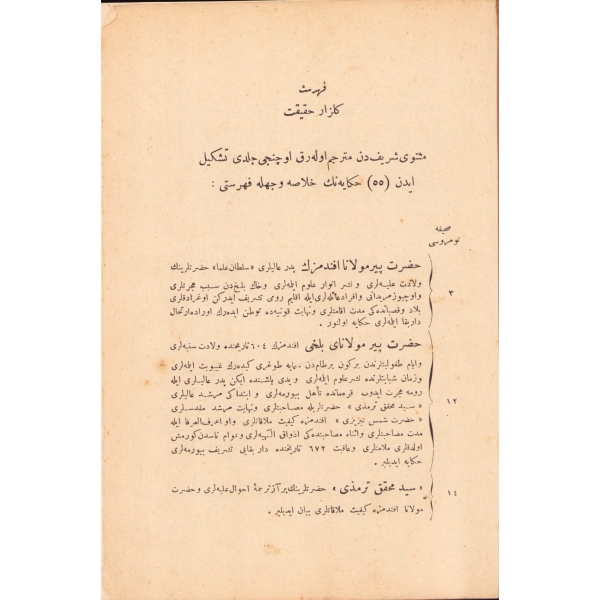 فهرست
كلزار حقيقت
مثنوی شریف دن مترجم اوله رق اوچنجی جلدی تشكیل
ایدن (٥٥) حكایه نك خلاصه وجهله فهرستی :
صحیفه
نومروسی
حضرت پیر مولانا افندمزك پدر عالیلری «سلطان علما» حضرتلرینك
ولادت علیه لری و نشر انوار علوم ایله لری و خاك بلخ دن سبب هجرتلری
٣
و اوچیوز مریدانی و افراد عائله لری ایله اقلیم رومی تشریف ایدركن اوغرادقلری
بلاد وقصباتده كی مدت اقامتلری ونهایت قونیه ده توطن ایده رك اوراده ارتحال
داربقا ایله لری حكایه اولنور .
حضرت پیر مولانای بلخی افندمزك ٦٠٤ تاریخنده ولادت سنیه لری
وایام طفولیتلرندن بركون برطام دن طوغری كیده رك غیبوبت ایله لری
وزمان شبابتلرنده نشر علوم ایله لری و یدی یاشنده ایكن پدر عالیلری ایله
رومه هجرت ایدوب قره مانده تأهل بیورمه لری و ابتداكی مرشد عالیلری
١٢
« سید محقق ترمذی » حضرتلریله مصاحبتلری ونهایت مرشد مقدسلری
« حضرت شمس تبریزی » افندمزه كیفیت ملاقاتلری واو اعرف العرفا ایله
مدت مصاحبتلری واثناء مصاحبتده كی اذواق الٰهیه لری وعوام ناسدن كورمش
اولدقلری ملامتلری وعاقبت ٦٧٢ تاریخنده دار بقایی تشریف بیورمه لری
حكایه ایدیلیر .
« سید محقق ترمذی » حضرتلرینك برآز ترجمۀ احوال علیه لری وحضرت
١٤
مولانا افندمزه كیفیت ملاقاتلری بیان ایدیلیر .